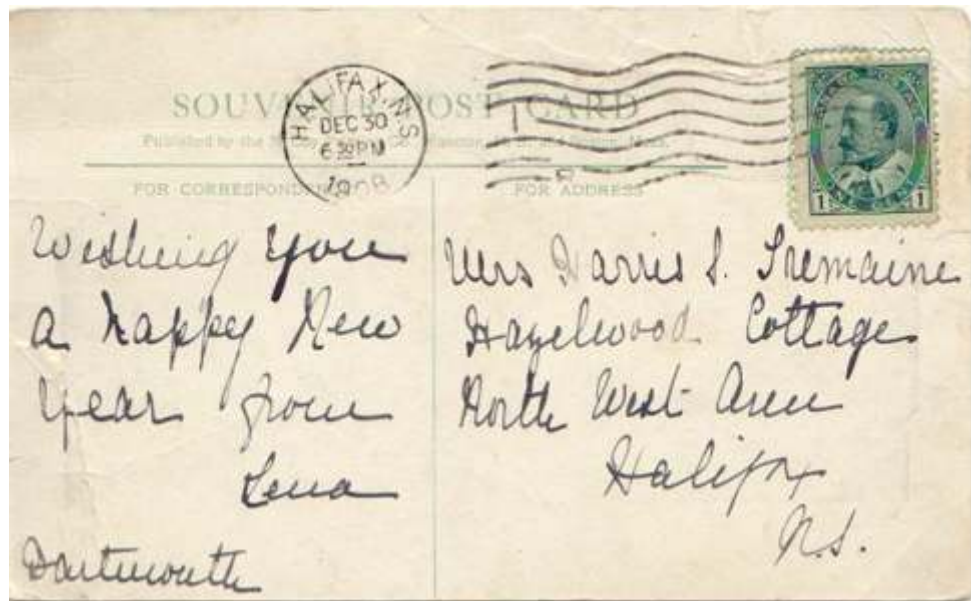 SOUVENIR POST CARD
Published by the
HALIFAX, N.S.
DEC 30
PM
1908
FOR CORRESPONDENCE
FOR ADDRESS
1 1
Wishing you
a happy New
Year from
Lena
Dartmouth
Mrs Harris S. Tremaine
Hazelwood Cottage
North West Arm
Halifax
N.S.